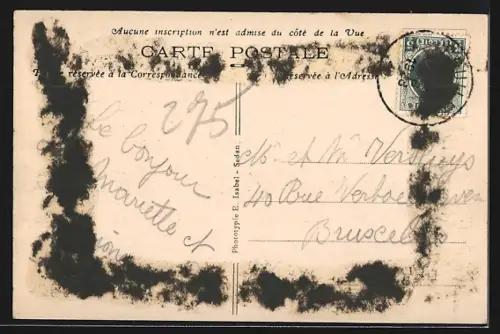 Aucune inscription n'est admise du côté de la Vue
CARTE POSTALE
réservée à la Correspondance
réservée à l'Adresse
275
Le bonjour
Mariette et
Phototypie E. Isabel - Sedan.
Mr et Me Versluys
40 Rue
Bruxelles